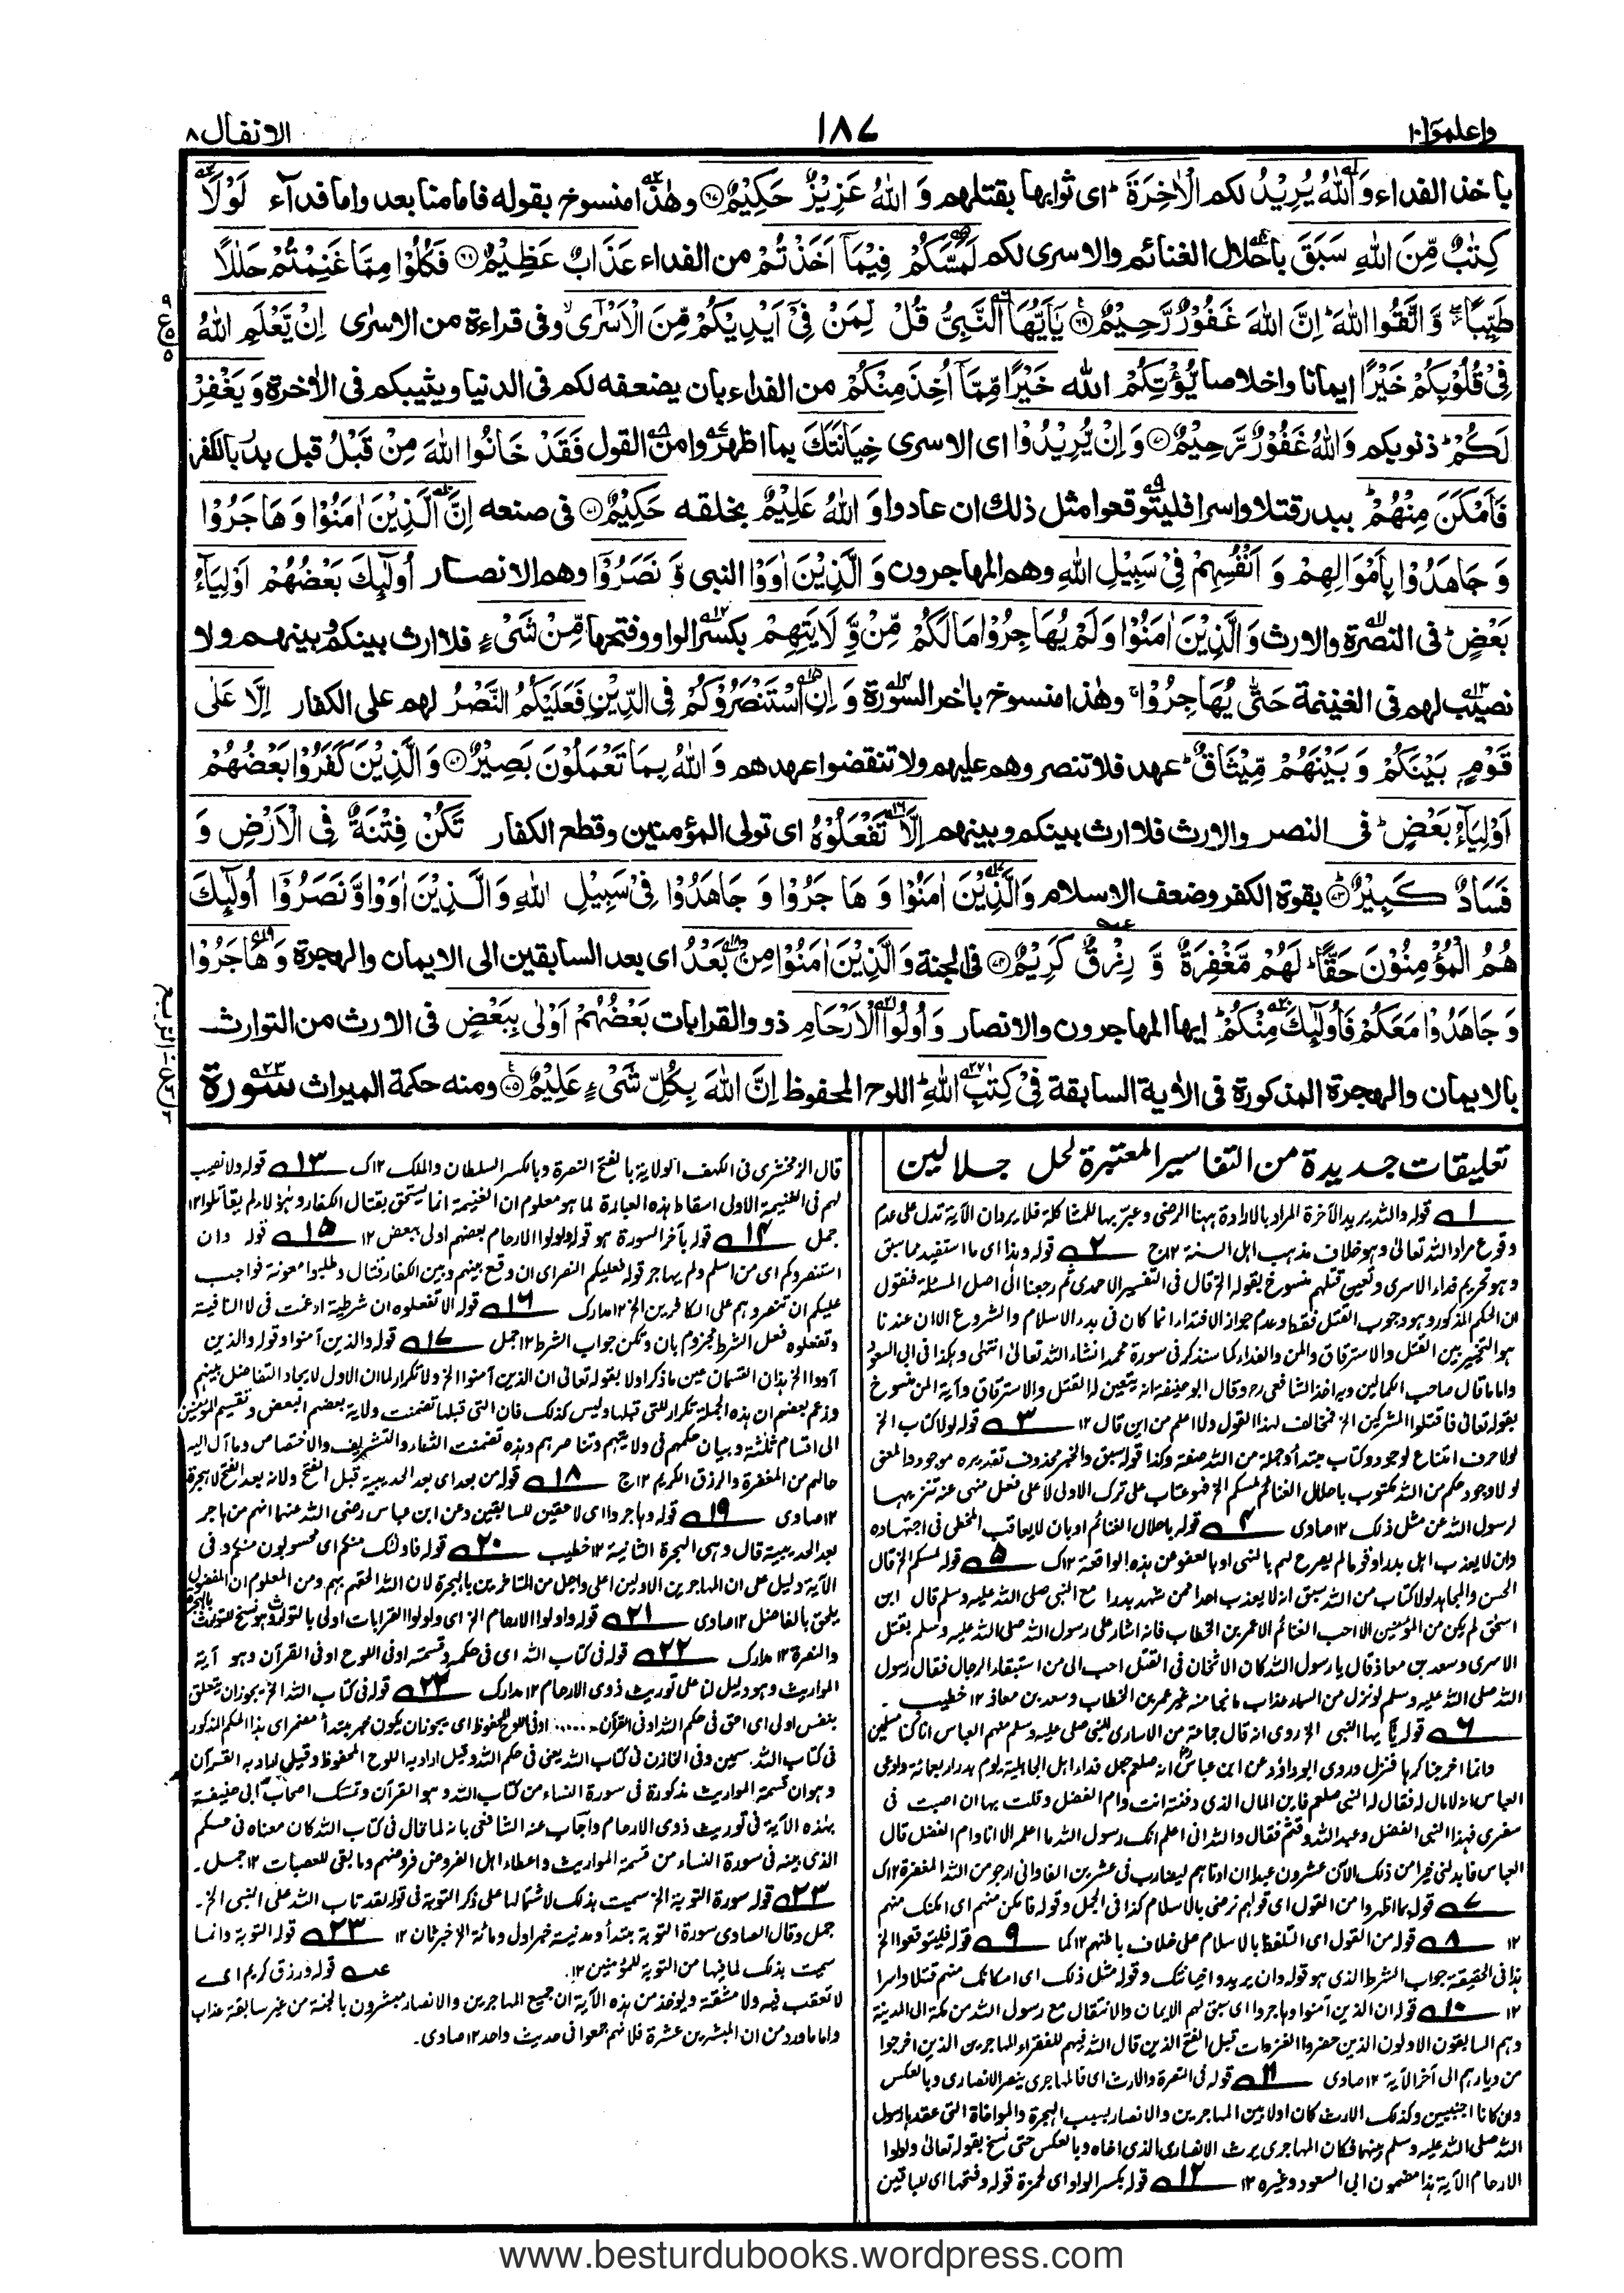 واعلموا ١٠
١٨٧
الانفال ٨
باخذ الفداء وَاللّٰهُ يُرِيْدُ لكم الْاٰخِرَةَ ؕ اى ثوابها بقتلهم وَ اللّٰهُ عَزِيْزٌ حَكِيْمٌ ۝٦٧ وهٰذا منسوخ بقوله فاما منا بعد واما فدآء لَوْلَا
كِتٰبٌ مِّنَ اللّٰهِ سَبَقَ باحلال الغنائم والاسرى لكم لَمَسَّكُمْ فِيْمَآ اَخَذْتُمْ من الفداء عَذَابٌ عَظِيْمٌ ۝٦٨ فَكُلُوْا مِمَّا غَنِمْتُمْ حَلٰلًا
طَيِّبًا ۖ وَّ اتَّقُوا اللّٰهَ ؕ اِنَّ اللّٰهَ غَفُوْرٌ رَّحِيْمٌ ۝٦٩ يٰٓاَيُّهَا النَّبِىُّ قُلْ لِّمَنْ فِىْٓ اَيْدِيْكُمْ مِّنَ الْاَسْرٰٓى ۙ وفى قراءة من الاسرٰى اِنْ يَّعْلَمِ اللّٰهُ
فِىْ قُلُوْبِكُمْ خَيْرًا ايمانا واخلاصا يُّؤْتِكُمْ الله خَيْرًا مِّمَّآ اُخِذَ مِنْكُمْ من الفداء بان يضعفه لكم فى الدنيا ويثيبكم فى الاٰخرة وَ يَغْفِرْ
لَكُمْ ؕ ذنوبكم وَاللّٰهُ غَفُوْرٌ رَّحِيْمٌ ۝٧٠ وَ اِنْ يُّرِيْدُوْا اى الاسرى خِيَانَتَكَ بما اظهروا من القول فَقَدْ خَانُوا اللّٰهَ مِنْ قَبْلُ قبل بدر بالكفر
فَاَمْكَنَ مِنْهُمْ ؕ ببدر قتلا واسرا فليتوقعوا مثل ذلك ان عادوا وَ اللّٰهُ عَلِيْمٌ بخلقه حَكِيْمٌ ۝٧١ فى صنعه اِنَّ الَّذِيْنَ اٰمَنُوْا وَ هَاجَرُوْا
وَ جَاهَدُوْا بِاَمْوَالِهِمْ وَ اَنْفُسِهِمْ فِىْ سَبِيْلِ اللّٰهِ وهم المهاجرون وَ الَّذِيْنَ اٰوَوْا النبى وَّ نَصَرُوْٓا وهم الانصار اُولٰٓئِكَ بَعْضُهُمْ اَوْلِيَآءُ
بَعْضٍ ؕ فى النصرة والارث وَ الَّذِيْنَ اٰمَنُوْا وَ لَمْ يُهَاجِرُوْا مَا لَكُمْ مِّنْ وَّ لَايَتِهِمْ بكسر الواو وفتحها مِّنْ شَىْءٍ فلا ارث بينكم وبينهم ولا
نصيب لهم فى الغنيمة حَتّٰى يُهَاجِرُوْا ۚ وهٰذا منسوخ باٰخر السورة وَ اِنِ اسْتَنْصَرُوْكُمْ فِى الدِّيْنِ فَعَلَيْكُمُ النَّصْرُ لهم على الكفار اِلَّا عَلٰى
قَوْمٍۭ بَيْنَكُمْ وَ بَيْنَهُمْ مِّيْثَاقٌ ؕ عهد فلا تنصروهم عليهم ولا تنقضوا عهدهم وَ اللّٰهُ بِمَا تَعْمَلُوْنَ بَصِيْرٌ ۝٧٢ وَ الَّذِيْنَ كَفَرُوْا بَعْضُهُمْ
اَوْلِيَآءُ بَعْضٍ ؕ فى النصر والارث فلا ارث بينكم وبينهم اِلَّا تَفْعَلُوْهُ اى تولى المؤمنين وقطع الكفار تَكُنْ فِتْنَةٌ فِى الْاَرْضِ وَ
فَسَادٌ كَبِيْرٌ ۝٧٣ بقوة الكفر وضعف الاسلام وَالَّذِيْنَ اٰمَنُوْا وَ هَاجَرُوْا وَ جَاهَدُوْا فِىْ سَبِيْلِ اللّٰهِ وَ الَّذِيْنَ اٰوَوْا وَّ نَصَرُوْٓا اُولٰٓئِكَ
هُمُ الْمُؤْمِنُوْنَ حَقًّا ؕ لَهُمْ مَّغْفِرَةٌ وَّ رِزْقٌ كَرِيْمٌ ۝٧٤ فى الجنة وَ الَّذِيْنَ اٰمَنُوْا مِنْۢ بَعْدُ اى بعد السابقين الى الايمان والهجرة وَ هَاجَرُوْا
وَ جَاهَدُوْا مَعَكُمْ فَاُولٰٓئِكَ مِنْكُمْ ؕ ايها المهاجرون والانصار وَ اُولُوا الْاَرْحَامِ ذوو القرابات بَعْضُهُمْ اَوْلٰى بِبَعْضٍ فى الارث من التوارث
بالايمان والهجرة المذكورة فى الاٰية السابقة فِىْ كِتٰبِ اللّٰهِ ؕ اللوح المحفوظ اِنَّ اللّٰهَ بِكُلِّ شَىْءٍ عَلِيْمٌ ۝٧٥ ومنه حكمة الميراث سورة
تعليقات جديدة من التفاسير المعتبرة لحل جلالين
١ قوله والله يريد الآخرة المراد بالارادة ههنا الرضى وعبر بها للمشاكلة فلا يرد ان الآية تدل على عدم
وقوع مراد الله تعالىٰ وهو خلاف مذهب اهل السنة ١٢ج ٢ قوله وهذا اى ما استفيد مما سبق
وهو تحريم فداء الاسرى وتعين قتلهم منسوخ بقوله الخ قال فى التفسير الاحمدى ثم رجعنا الى اصل المسئلة فنقول
ان الحكم المذكور وهو وجوب القتل فقط وعدم جواز الافتداء انما كان فى بدء الاسلام والمشروع الآن عندنا
هو التخيير بين القتل والاسترقاق والمن والفداء كما سنذكر فى سورة محمد انشاء الله تعالىٰ انتهى وهكذا فى ابى السعود
واما ما قال صاحب الكمالين وبه اخذ الشافعى رح وقال ابو حنيفة انه يتعين له القتل والاسترقاق وآية المن منسوخ
بقوله تعالى فاقتلوا المشركين الخ فمخالف لهذا القول ولا اعلم من اين قال ١٢ ٣ قوله لولا كتاب الخ
لولا حرف امتناع لوجود وكتاب مبتدأ وجملة من الله صفة وكذا قوله سبق والخبر محذوف تقديره موجود والمعنى
لولا وجود حكم من الله مكتوب باحلال الغنائم لمسكم الخ فهو عتاب على ترك الاولى لا على فعل منهى عنه تنزيها
لرسول الله عن مثل ذلك ١٢ صاوى ٤ قوله باحلال الغنائم او بان لا يعاقب المخطى فى اجتهاده
وان لا يعذب اهل بدر او قوما لم يصرح لهم بالنهى او بالعفو عن هذه الواقعة ١٢ك ٥ قوله لمسكم الخ قال
الحسن والمجاهد لولا كتاب من الله سبق انه لا يعذب احدا ممن شهد بدرا مع النبى صلى الله عليه وسلم قال ابن
اسحٰق لم يكن من المؤمنين الا احب الغنائم الا عمر بن الخطاب فانه اشار على رسول الله صلى الله عليه وسلم بقتل
الاسرى وسعد بن معاذ قال يا رسول الله كان الاثخان فى القتل احب الى من استبقاء الرجال فقال رسول
الله صلى الله عليه وسلم لو نزل من السماء عذاب ما نجا منه غير عمر بن الخطاب وسعد بن معاذ ١٢ خطيب ۔
٦ قوله يٰايها النبى الخ روى انه قال جماعة من الاسارى للنبى صلى عليه وسلم منهم العباس انا كنا مسلمين
وانما اخرجنا كرها فنزل وروى ابو داؤد عن ابن عباس انه صلعم جعل فداء اهل الجاهلية يوم بدر اربعمائة وادعى
العباس انه لا مال له فقال له النبى صلعم فاين المال الذى دفنته انت وام الفضل وقلت لها ان اصبت فى
سفرى فهذا لبنى الفضل وعبد الله وقثم فقال والله انى اعلم انك رسول الله ما اعلمه الا انا وام الفضل قال
العباس فابدلنى خيرا من ذلك الآن عشرون عبدا ان ادناهم ليضارب فى عشرين الفا وانى ارجو من الله المغفرة ١٢ك
٧ قوله بما اظهروا من القول اى قولهم نرضى بالاسلام كذا فى الجمل وقوله فامكن منهم اى امكنك منهم
١٢ ٨ قوله من القول اى التلفظ بالاسلام على خلاف باطنهم ١٢ كما ٩ قوله فليتوقعوا الخ
هذا فى الحقيقة جواب الشرط الذى هو قوله وان يريدوا خيانتك وقوله مثل ذلك اى امكانك منهم قتلا واسرا
١٢ ١٠ قوله ان الذين آمنوا وهاجروا اى سبق لهم الايمان والانتقال مع رسول الله من مكة الى المدينة
وهم السابقون الاولون الذين حضروا الغزوات قبل الفتح الذين قال الله فيهم للفقراء المهاجرين الذين اخرجوا
من ديارهم الى آخر الآية ١٢ صاوى ١١ قوله فى النصرة والارث اى فالمهاجرى ينصر الانصارى وبالعكس
وان كانا اجنبيين وكذلك الارث كان اولا بين المهاجرين والانصار بسبب الهجرة والمواخاة التى عقدها رسول
الله صلى الله عليه وسلم بينهما فكان المهاجرى يرث الانصارى الذى اخاه وبالعكس حتى نسخ بقوله تعالى واولوا
الارحام الآية هذا مضمون ابى السعود وغيره ١٢ ١٢ قوله بكسر الواو اى لحمزة قوله وفتحها اى للباقين
قال الزمخشرى فى الكهف الولاية بالفتح النصرة وبالكسر السلطان والملك ١٢ك ١٣ قوله ولا نصيب
لهم فى الغنيمة الاولى اسقاط هذه العبارة لما هو معلوم ان الغنيمة انما يستحق بقتال الكفار وهؤلاء لم يقاتلوا ١٢
جمل ١٤ قوله بآخر السورة هو قوله واولوا الارحام بعضهم اولى ببعض ١٢ ١٥ قوله وان
استنصروكم اى من اسلم ولم يهاجر قوله فعليكم النصر اى ان وقع بينهم وبين الكفار قتال وطلبوا معونة فواجب
عليكم ان تنصروهم على الكافرين الخ ١٢ مدارك ١٦ قوله الا تفعلوه ان شرطية ادغمت فى لا النافية
وتفعلوه فعل الشرط مجزوم بان وتكن جواب الشرط ١٢ جمل ١٧ قوله والذين آمنوا وقوله والذين
آووا الخ هذان القسمان عين ما ذكر اولا بقوله تعالى ان الذين آمنوا الخ ولا تكرار لما ان الاول لايجاد التفاضل بينهم
وزعم بعضهم ان هذه الجملة تكرار للتى قبلها وليس كذلك فان التى قبلها تضمنت ولاية بعضهم البعض وتقسيم المؤمنين
الى اقسام ثلثة وبيان حكمهم فى ولايتهم وتناصرهم وهذه تضمنت الثناء والتشريف والاختصاص وما آل اليه
حالهم من المغفرة والرزق الكريم ١٢ج ١٨ قوله من بعد اى بعد الحديبية قبل الفتح ولانه بعد الفتح لا هجرة
١٢ صاوى ١٩ قوله وهاجروا اى لاحقين للسابقين وعن ابن عباس رضى الله عنهما انهم من هاجر
بعد الحديبية قال وهى الهجرة الثانية ١٢ خطيب ٢٠ قوله فاولئك منكم اى محسوبون منكم وفى
الآية دليل على ان المهاجرين الاولين اعلى واجل من المتاخرين بالهجرة لان الله الحقهم بهم ومن المعلوم ان المفضول
يلحق بالفاضل ١٢ صاوى ٢١ قوله واولوا الارحام الخ اى واولوا القرابات اولى بالتوارث وهو نسخ للتوارث بالهجرة
والنصرة ١٢ مدارك ٢٢ قوله فى كتاب الله اى فى حكمه وقسمته او فى اللوح او فى القرآن وهو آية
المواريث وهو دليل لنا على توريث ذوى الارحام ١٢ مدارك ٢٣ قوله فى كتاب الله الخ يجوز ان يتعلق
بنفس اولى اى احق فى حكم الله او فى القرآن ..... او فى اللوح المحفوظ اى يجوز ان يكون خبر مبتدأ مضمر اى هذا الحكم المذكور
فى كتاب الله. سمين وفى الخازن فى كتاب الله يعنى فى حكم الله وقيل اراد به اللوح المحفوظ وقيل اراد به القرآن
وهو ان قسمة المواريث مذكورة فى سورة النساء من كتاب الله وهو القرآن وتمسك اصحاب ابى حنيفة
بهذه الآية فى توريث ذوى الارحام واجاب عنه الشافعى بانه لما قال فى كتاب الله كان معناه فى حكم
الذى بينه فى سورة النساء من قسمة المواريث واعطاء اهل الفروض فروضهم وما بقى للعصبات ١٢ جمل ۔
٢٣ قوله سورة التوبة الخ سميت بذلك لاشتمالها على ذكر التوبة فى قوله لقد تاب الله على النبى الخ ۔
جمل وقال الصاوى سورة التوبة مبتدأ ومدنية خبر اول ومائة الخ خبر ثان ١٢ ٢٣ قوله التوبة وانما
سميت بذلك لما فيها من التوبة للمؤمنين ١٢. عه قوله ورزق كريم اى
لا تعقب فيه ولا مشقة ويوخذ من هذه الآية ان جميع المهاجرين والانصار مبشرون بالجنة من غير سابقة عذاب
واما ما ورد من ان المبشرين عشرة فلانهم جمعوا فى حديث واحد ١٢ صاوى.
www.besturdubooks.wordpress.com